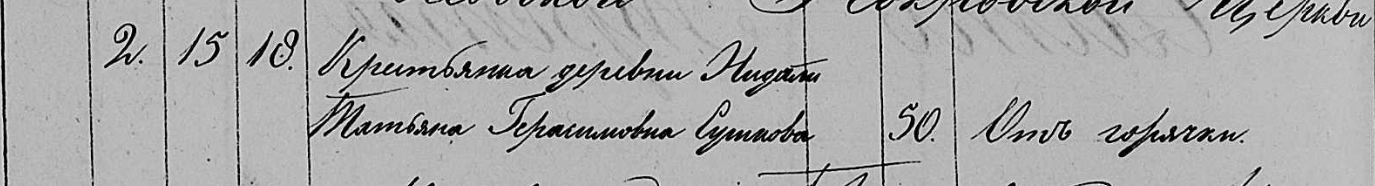 Покровской Церкви
2. 15 18. Крестьянка деревни Нидали
Татьяна Герасимовна Сушкова 50. Отъ горячки.